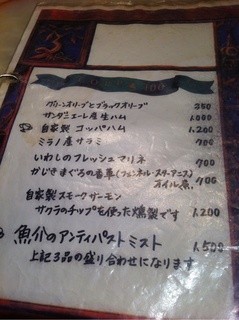 グリーンオリーブとブラックオリーブ 350
サンダニエーレ産生ハム 1.000
自家製 コッパハム 1.200
ミラノ産サラミ 700
いわしのフレッシュマリネ 700
かじきまぐろの香草(フェンネル・スターアニス)
オイル煮 700
自家製スモークサーモン
サクラのチップを使った燻製です 1.200
魚介のアンティパストミスト 1.500
上記3品の盛り合わせになります